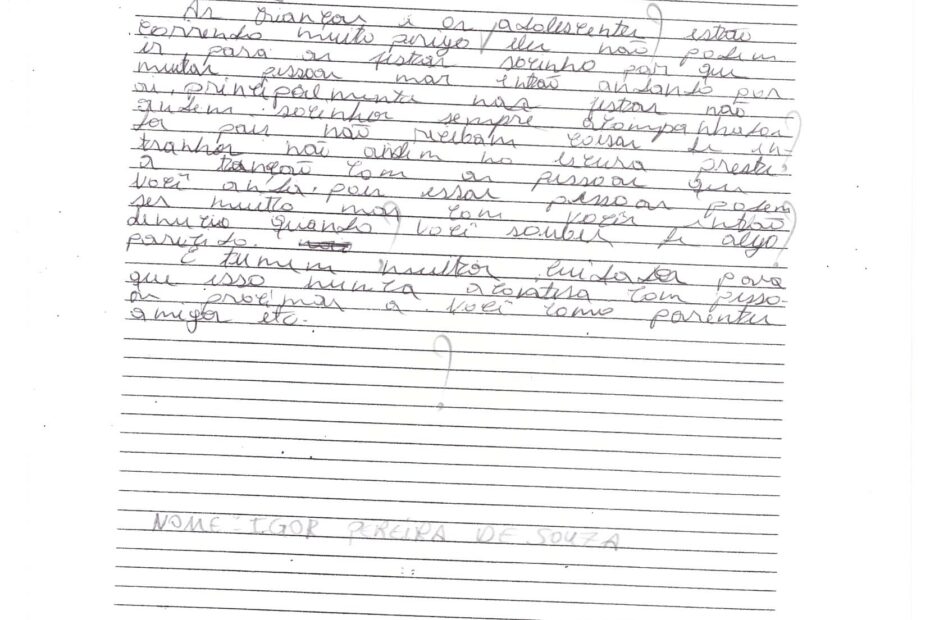 As crianças i os adolescentes estão
correndo muito perigo eles não podem
ir para as festas sozinho por que
muitas pessoas mas então andando por
ai, principalmente nas festas não
andem sozinhos sempre acompanhados
dos pais não recibam coisas de is-
tranhos não andem no iscuro presti
a tanção com as pessoas que
você anda, pois essas pessoas podem
ser muitto mas com você então
dinuncio quando você souber de algo
parecido.
E tumem muitos cuidados para
que isso nunca aconteisa com pisso-
as proximas a você como parentes
amigos etc.
NOME: IGOR PEREIRA DE SOUZA